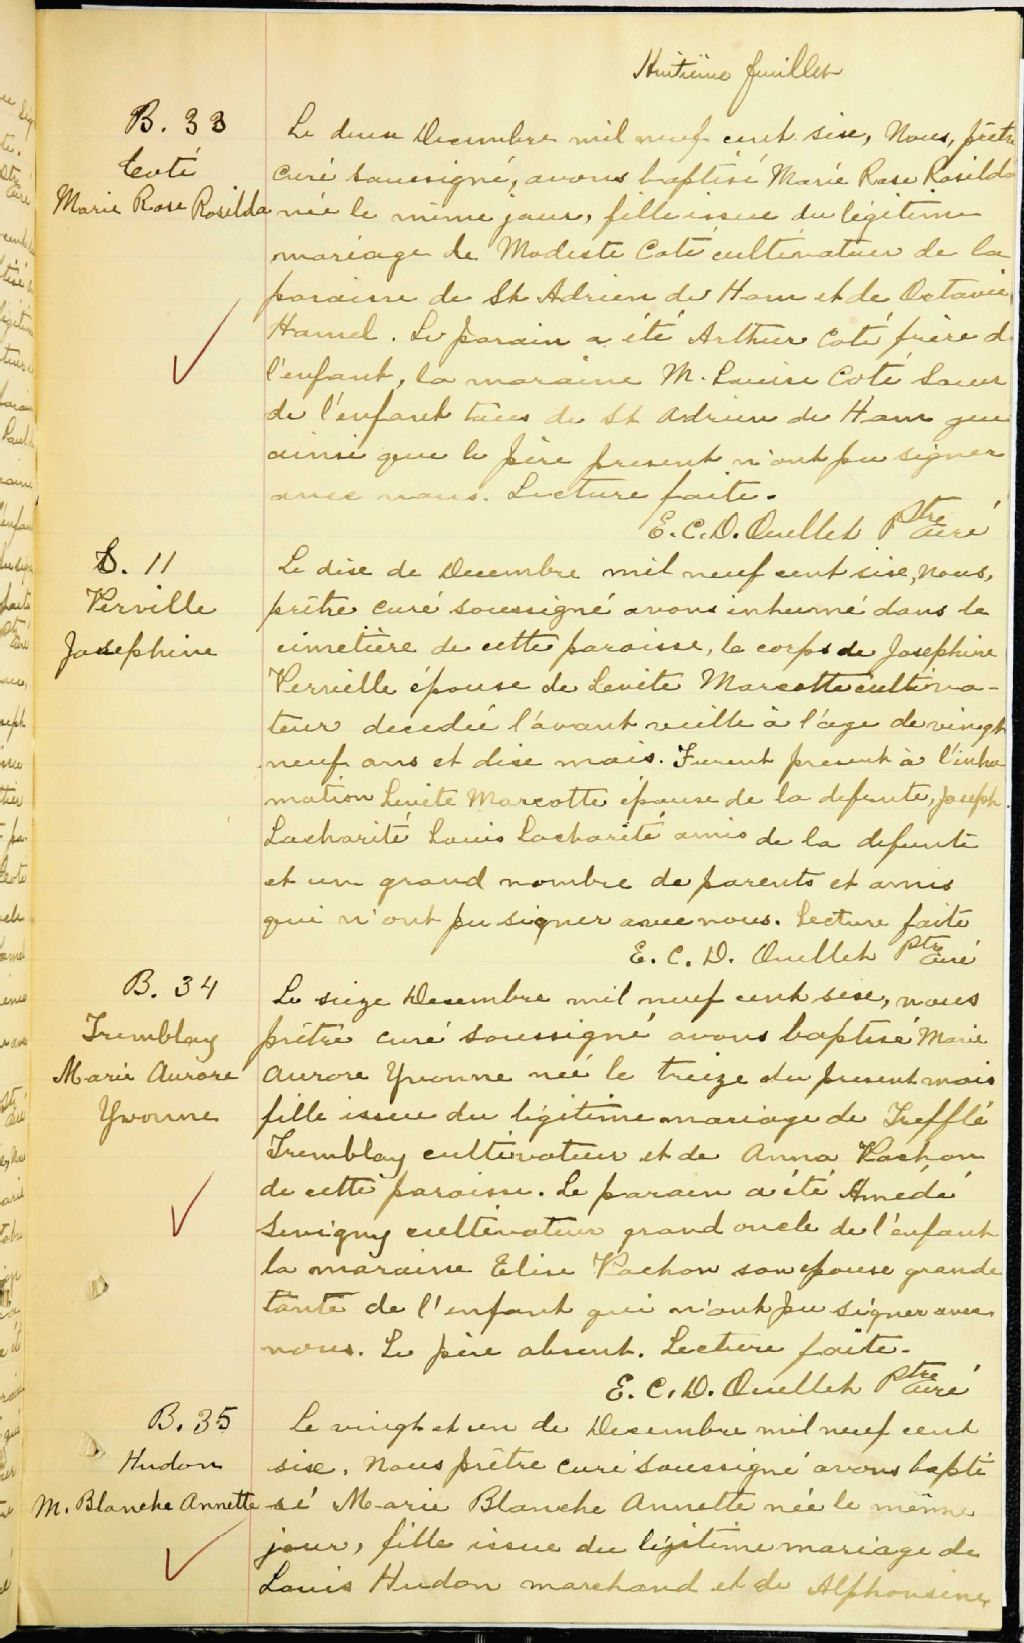 Huitième feuillet
B. 33
Coté
Marie Rose Rosilda
Le deux Decembre mil neuf cent sise, Nous, prêtre
curé soussigné, avons baptisé Marie Rose Rosilda
née le même jour, fille issue du légitime
mariage de Modeste Coté cultivateur de la
paroisse de St Adrien de Ham et de Octavie
Hamel. Le parain a été Arthur Coté frère de
l'enfant, la maraine M. Louise Coté Soeur
de l'enfant tous de St Adrien de Ham qui
ainsi que le père present n'ont pu signer
avec nous. Lecture faite.
E. C. D. Ouellet Ptre Curé
S. 11
Verville
Josephine
Le dise de Decembre mil neuf cent sise, nous,
prêtre curé soussigné avons inhumé dans le
cimetière de cette paroisse, le corps de Josephine
Verville épouse de Levite Marcotte cultiva-
teur decedée l'avant veille à l'age de vingt
neuf ans et dise mois. Furent present à l'inhu
mation Levite Marcotte épouse de la defunte, Joseph
Lacharité Louis Lacharité amis de la defunte
et un grand nombre de parents et amis
qui n'ont pu signer avec nous. Lecture faite
E. C. D. Ouellet Ptre Curé
B. 34
Tremblay
Marie Aurore
Yvonne
Le seize Decembre mil neuf cent sise, nous
prêtre curé soussigné avons baptisé Marie
Aurore Yvonne née le treize du present mois
fille issue du légitime mariage de Trefflé
Tremblay cultivateur et de Anna Vachon
de cette paroisse. Le parain a été Amédé
Sevigny cultivateur grand oncle de l'enfant
la maraine Elise Vachon son epouse grande
tante de l'enfant qui n'ont pu signer avec
nous. Le père absent. Lecture faite.
E. C. D. Ouellet Ptre Curé
B. 35
Hudon
M. Blanche Annette
Le vingt et un de Decembre mil neuf cent
sise. Nous prêtre curé soussigné avons bapti
sé Marie Blanche Annette née le même
jour, fille issue du légitime mariage de
Louis Hudon marchand et de Alphonsine